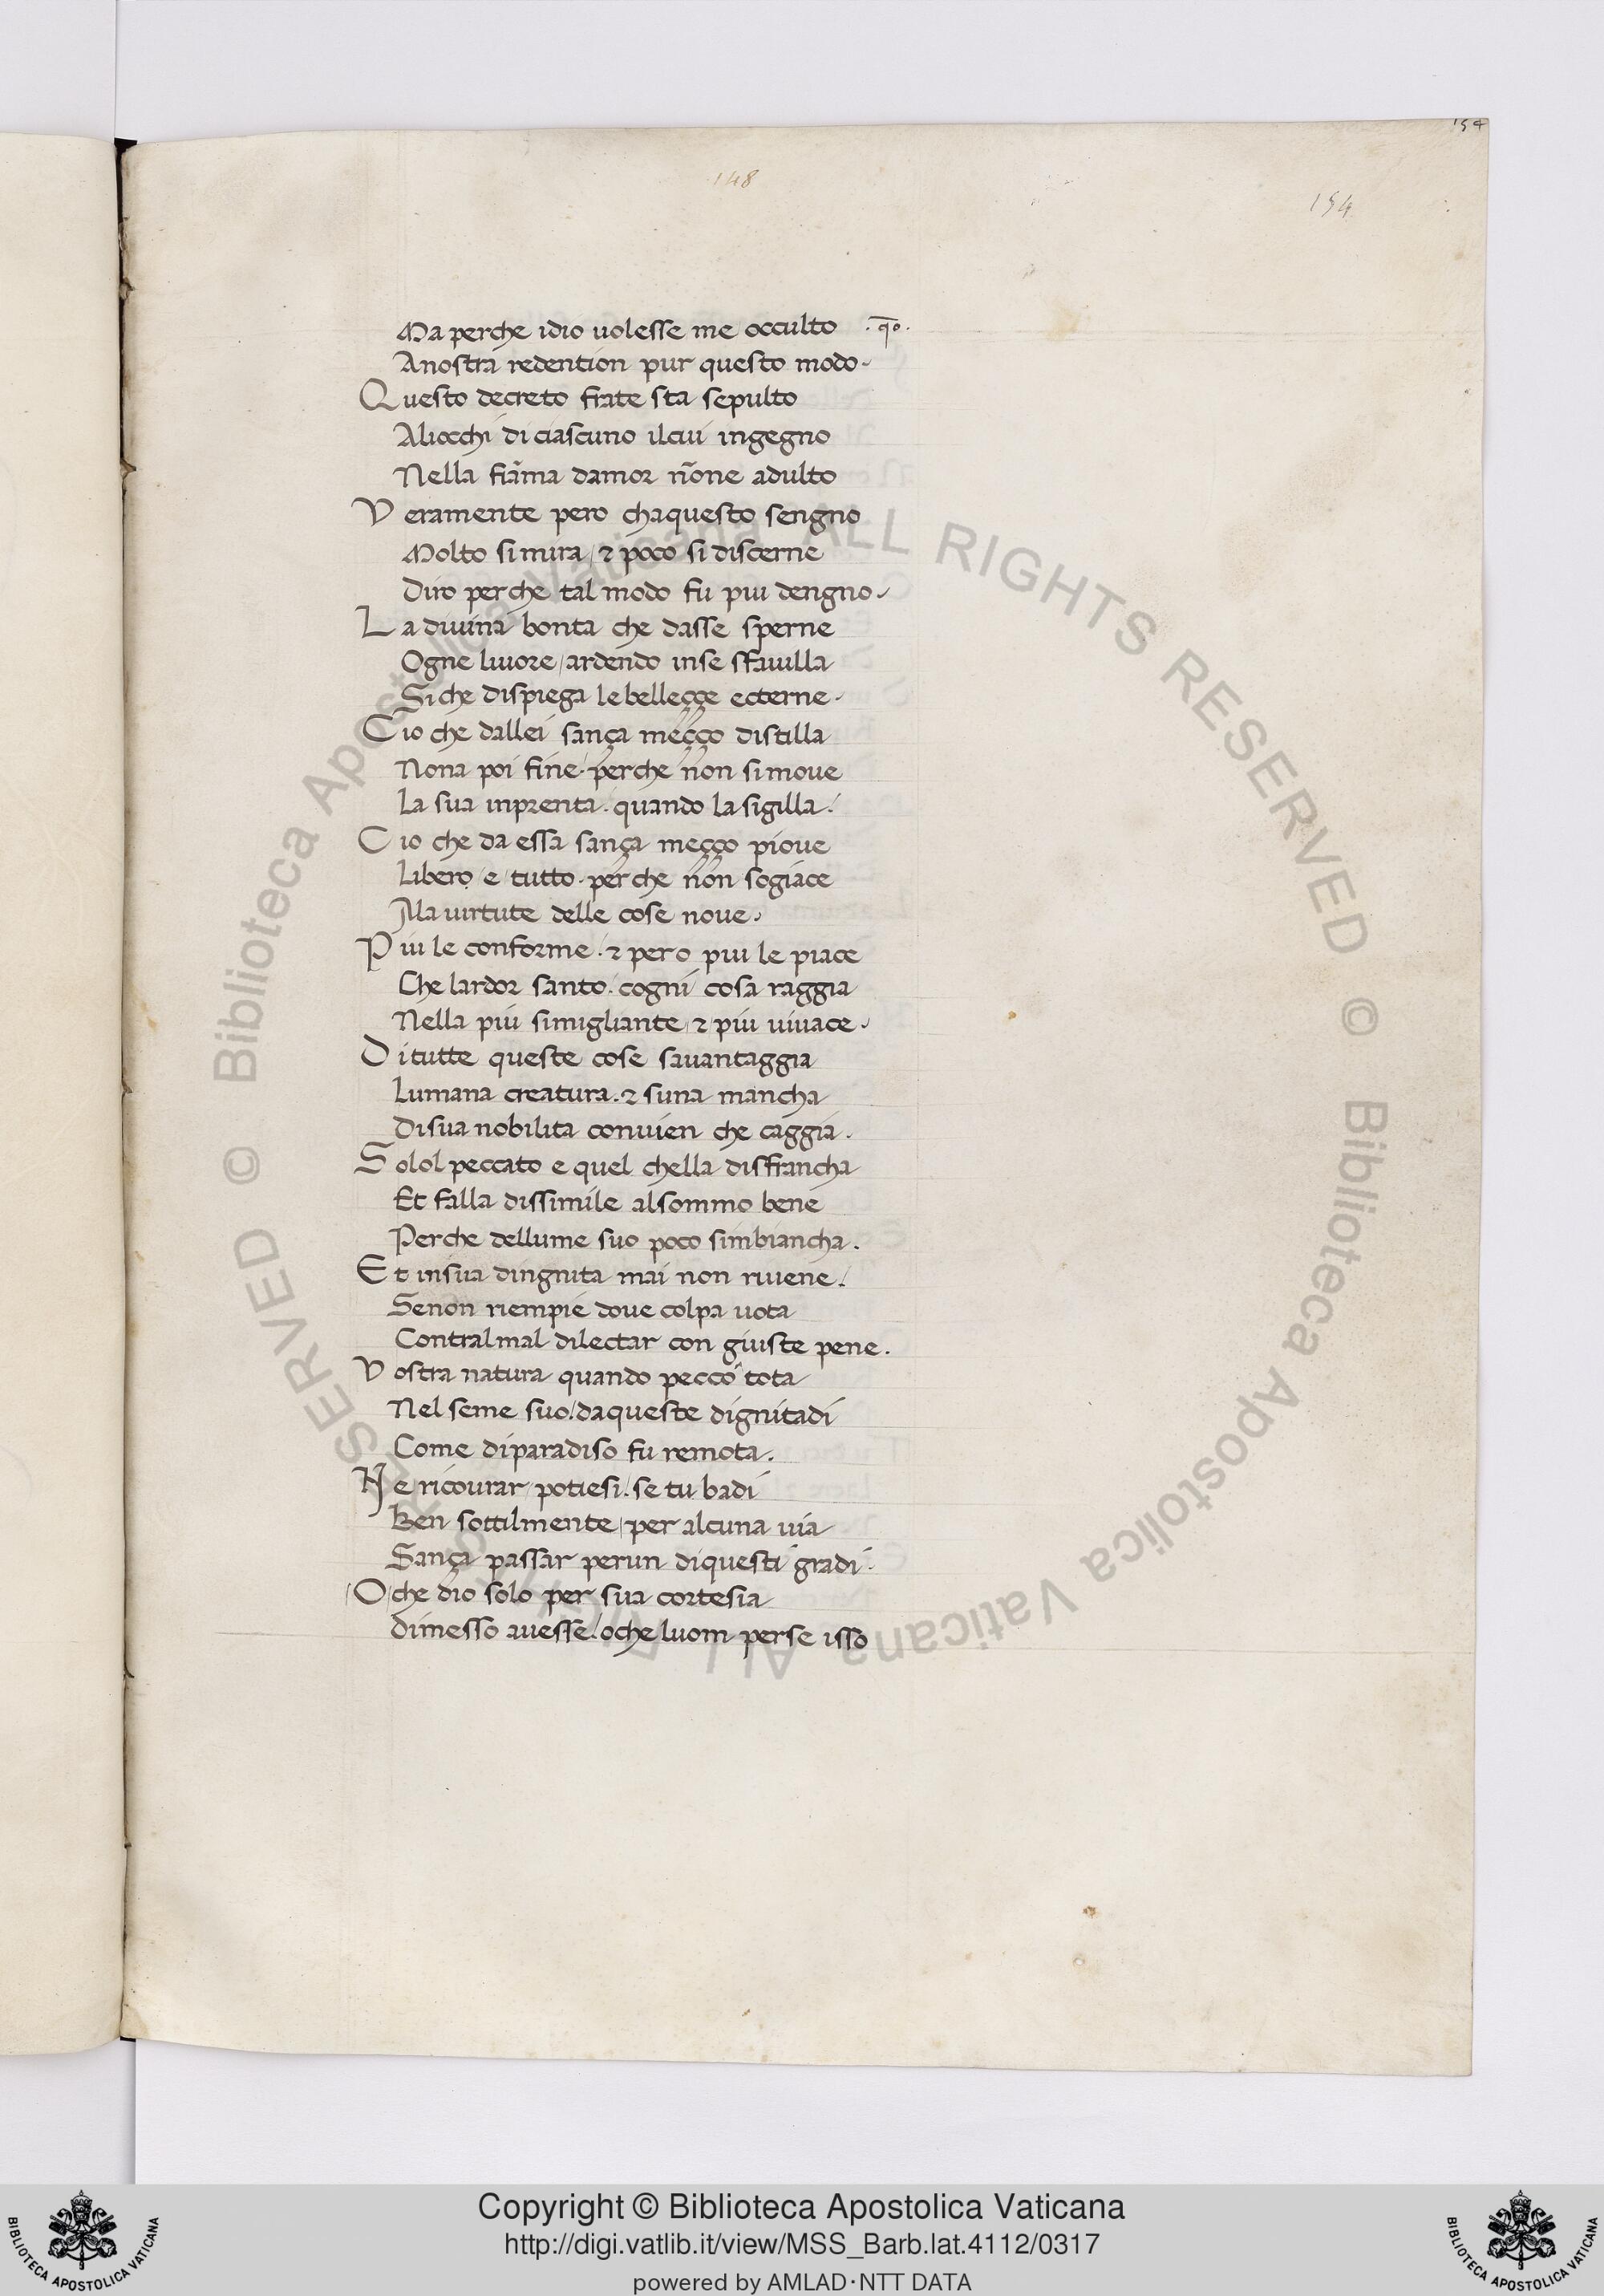 154
148
154
Ma perche idio uolesse me occulto .q̄o.
Anostra redention pur questo modo.
Questo decreto frate sta sepulto
Aliocchi di ciascuno ilcui ingegno
Nella fiām̄a damor nōne adulto
Veramente pero chaquesto sengno
Molto si mira / ⁊ poco si discerne
Diro perche tal modo fu piu dengno.
La diuina bonta che dasse sperne
Ogne liuore / ardendo inse sfauilla
Siche dispiega le belleççe ecterne.
Cio che dallei sança meçço distilla
Nona poi fine. perche non simoue
La sua inprenta. quando la sigilla.
Cio che da essa sança meçço pioue
Libero / e / tutto. perche non sogiace
Alla uirtute delle cose noue.
Piu le conforme. ⁊ pero piu le piace
Che lardor santo. cogni cosa raggia
Nella piu simigliante / ⁊ / piu uiuace.
Di tutte queste cose sauantaggia
Lumana creatura. ⁊ suna mancha
Disua nobilita conuien che caggia.
Solol peccato e quel chella disfrancha
Et falla dissimile alsommo bene
Perche dellume suo poco simbiancha.
Et insua dingnita mai non riuene.
Senon riempie doue colpa uota
Contralmal dilectar con giuste pene.
Vostra natura quando pecco tota
Nel seme suo. daqueste dignitadi
Come diparadiso fu remota.
Ne ricourar potiesi. se tu badi
Ben sottilmente / per alcuna uia
Sança passar perun diquesti gradi.
O che dio solo per sua cortesia
Dimesso auesse. oche luom perse isso
© Biblioteca Apostolica Vaticana ALL RIGHTS RESERVED © Biblioteca Apostolica Vaticana ALL RIGHTS RESERVED
Copyright © Biblioteca Apostolica Vaticana
http://digi.vatlib.it/view/MSS_Barb.lat.4112/0317
powered by AMLAD·NTT DATA
BIBLIOTECA APOSTOLICA VATICANA
BIBLIOTECA APOSTOLICA VATICANA